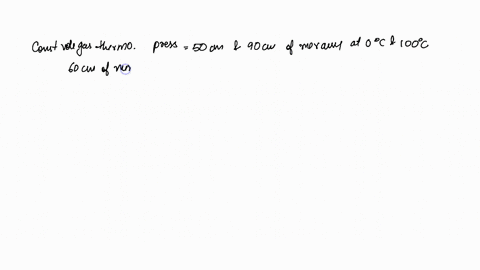 Const vol gas-thermo. press = 50 cm & 90 cm of mercury at 0°C & 100°C
60 cm of mer